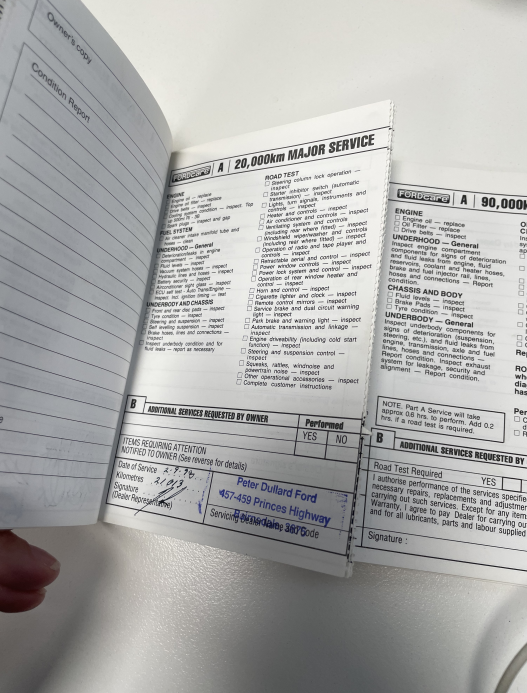 Owner's copy
Condition Report
FORDCARE A 20,000km MAJOR SERVICE
ENGINE
Engine oil — replace
Engine oil filter — replace
Drive belts — inspect
Cooling system condition — inspect. Top
Spark plugs — inspect and gap
FUEL SYSTEM
Air cleaner intake manifold tube and
hoses — clean
UNDERHOOD — General
Deterioration/leaks in engine
compartment — inspect
Fluid levels — inspect
Vacuum system hoses — inspect
Hydraulic lines and hoses — inspect
Battery security — inspect
Airconditioner sight glass — inspect
ECU self test - Auto Trans/Engine
Inspect. incl. ignition timing — test
UNDERBODY AND CHASSIS
Front and rear disc pads — inspect
Tyre condition — inspect
Steering and suspension — inspect
Self levelling suspension — inspect
Brake hoses, lines and connections —
inspect
Inspect underbody condition and for
fluid leaks — report as necessary
ROAD TEST
Steering column lock operation —
inspect
Starter inhibitor switch (automatic
transmission) — inspect
Lights, turn signals, instruments and
controls — inspect
Heater and controls — inspect
Air conditioner and controls — inspect
Ventilating system and controls
(including rear where fitted) — inspect
Windshield wiper/washer and controls
(including rear where fitted) — inspect
Operation of radio and tape player and
controls — inspect
Retractable aerial and control — inspect
Operation of rear window heater and
control — inspect
Power window controls — inspect
Power lock system and control — inspect
Operation of rear window heater and
control — inspect
Horn and control — inspect
Cigarette lighter and clock — inspect
Remote control mirrors — inspect
Service brake and dual circuit warning
light — inspect
Park brake and warning light — inspect
Automatic transmission and linkage —
inspect
Engine driveability (including cold start
function) — inspect
Steering and suspension control —
inspect
Squeaks, rattles, windnoise and
powertrain noise — inspect
Other operational accessories — inspect
Complete customer instructions
B ADDITIONAL SERVICES REQUESTED BY OWNER
Performed
YES NO
ITEMS REQUIRING ATTENTION
NOTIFIED TO OWNER (See reverse for details)
Date of Service
Kilometres
Signature
(Dealer Representative)
Peter Dullard Ford
457-459 Princes Highway
Bairnsdale, 3875
Servicing Dealer Name and Code
FORDCARE A 90,000k
ENGINE
Engine oil — replace
Oil Filter — replace
Drive belts — inspect
UNDERHOOD — General
Inspect engine compartment
components for signs of deterioration
and fluid leaks from engine, fluid
reservoirs, coolant and heater hoses,
brake and fuel injector rail, lines,
hoses and connections — Report
condition.
CHASSIS AND BODY
Fluid levels — inspect
Brake Pads — inspect
Tyre condition — inspect
UNDERBODY — General
Inspect underbody components for
signs of deterioration (suspension,
steering, etc.), and fluid leaks from
engine, transmission, axle and fuel
lines, hoses and connections —
Report condition. Inspect exhaust
system for leakage, security and
alignment — Report condition.
NOTE. Part A Service will take
approx 0.6 hrs. to perform. Add 0.2
hrs. if a road test is required.
B ADDITIONAL SERVICES REQUESTED BY
Road Test Required YES
I authorise performance of the services specified
necessary repairs, replacements and adjustmen
carrying out such services. Except for any items
Warranty, I agree to pay Dealer for carrying out
and for all lubricants, parts and labour supplied
Signature :